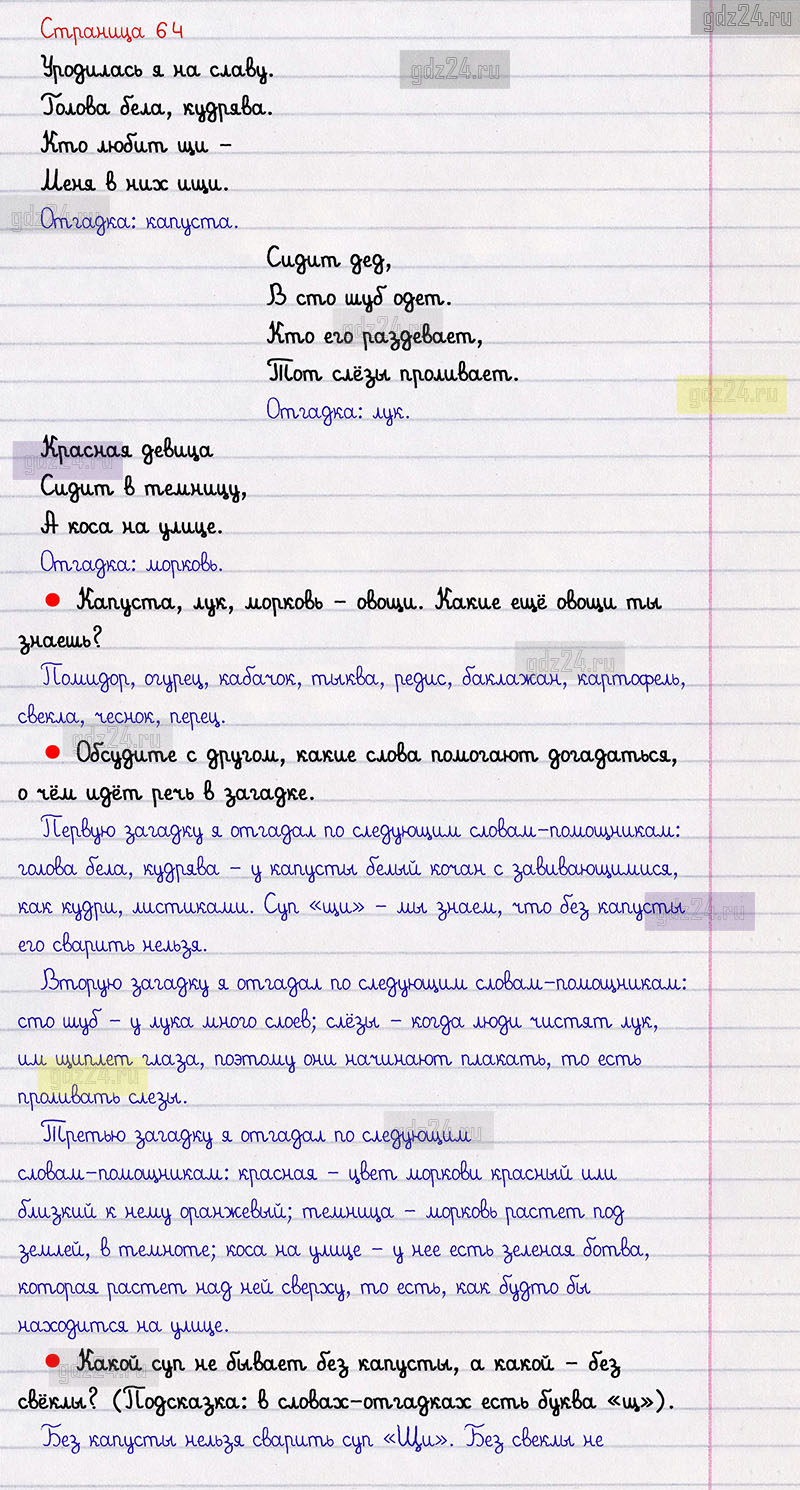 Страница 64
gdz24.ru
Уродилась я на славу.
gdz24.ru
Голова бела, кудрява.
Кто любит щи –
Меня в них ищи.
gdz24.ru
Отгадка: капуста.
Сидит дед,
В сто шуб одет.
gdz24.ru
Кто его раздевает,
Тот слёзы проливает.
gdz24.ru
Отгадка: лук.
Красная девица
gdz24.ru
Сидит в темницу,
А коса на улице.
Отгадка: морковь.
• Капуста, лук, морковь – овощи. Какие ещё овощи ты
знаешь?
gdz24.ru
Помидор, огурец, кабачок, тыква, редис, баклажан, картофель,
свекла, чеснок, перец.
gdz24.ru
• Обсудите с другом, какие слова помогают догадаться,
о чём идёт речь в загадке.
Первую загадку я отгадал по следующим словам-помощникам:
голова бела, кудрява – у капусты белый кочан с завивающимися,
как кудри, листиками. Суп «щи» – мы знаем, что без капусты
gdz24.ru
его сварить нельзя.
Вторую загадку я отгадал по следующим словам-помощникам:
сто шуб – у лука много слоев; слёзы – когда люди чистят лук,
им щиплет глаза, поэтому они начинают плакать, то есть
gdz24.ru
проливать слезы.
Третью загадку я отгадал по следующим
gdz24.ru
словам-помощникам: красная – цвет моркови красный или
близкий к нему оранжевый; темница – морковь растет под
землей, в темноте; коса на улице – у нее есть зеленая ботва,
которая растет над ней сверху, то есть, как будто бы
находится на улице.
• Какой суп не бывает без капусты, а какой – без
gdz24.ru
свёклы? (Подсказка: в словах-отгадках есть буква «щ»).
Без капусты нельзя сварить суп «Щи». Без свеклы не